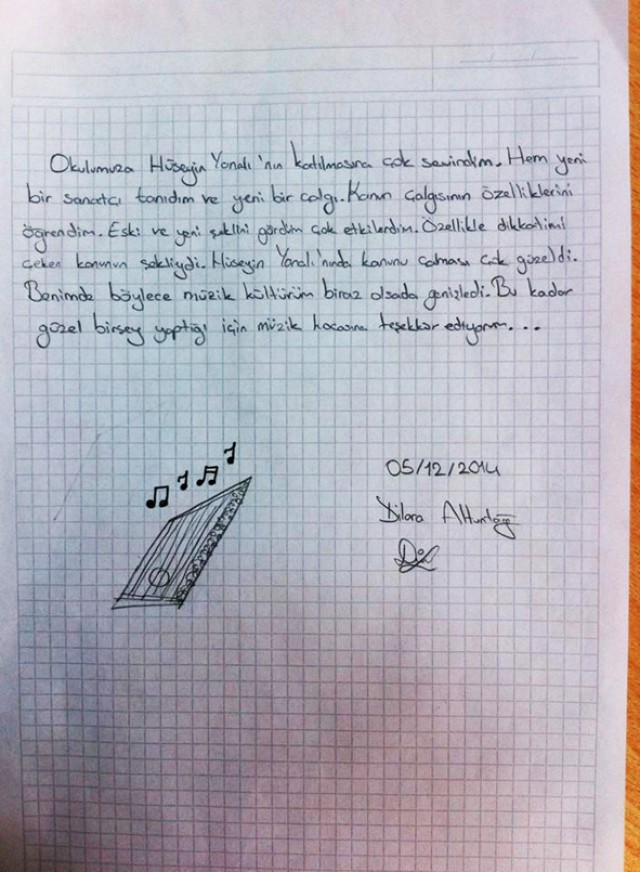 Okulumuza Hüseyin Yonalı'nın katılmasına çok sevindim. Hem yeni
bir sanatçı tanıdım ve yeni bir çalgı. Kanun çalgısının özelliklerini
öğrendim. Eski ve yeni şeklini gördüm çok etkilendim. Özellikle dikkatimi
çeken kanunun şekliydi. Hüseyin Yonalı'nında kanunu çalması çok güzeldi.
Benimde böylece müzik kültürüm biraz olsada genişledi. Bu kadar
güzel birşey yaptığı için müzik hocasına teşekkür ediyorum...
05/12/2014
Dilara